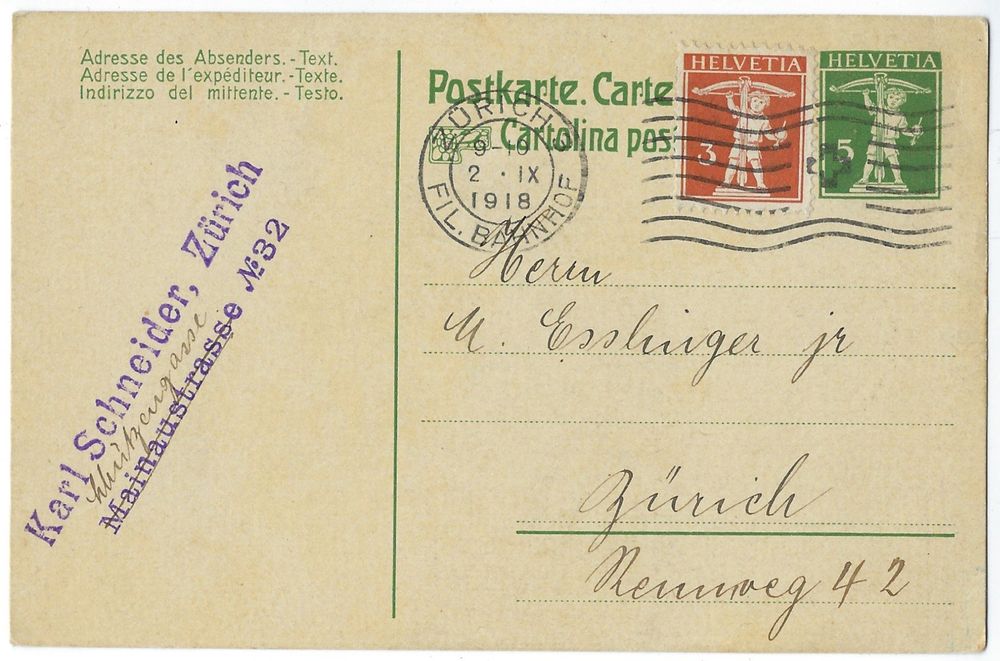 Adresse des Absenders. - Text.
Adresse de l'expéditeur. - Texte.
Indirizzo del mittente. - Testo.
Karl Schneider, Zürich
Schützengasse
Mainaustrasse № 32
Postkarte. Carte
Cartolina pos
HELVETIA
3
HELVETIA
5
ZÜRICH
9-10
2 · IX
1918
FIL. BAHNHOF
Herrn
M. Esslinger jr
Zürich
Rennweg 42